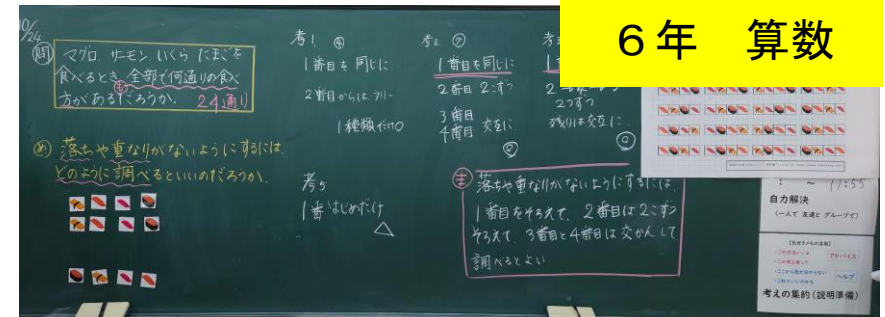 6年 算数
10/24
問 マグロ、サーモン いくら たまごを
食べるとき、全部で何通りの食べ
方があるだろうか。 24通り
め 落ちや重なりがないようにするには、
どのように調べるといいのだろうか。
考1
1番目を同じに
2番目からはフリー
1種類だけ○
考2
1番目を同じに
2番目 2こずつ
3番目
4番目 交互に
2つずつ
残りは交互に
考5
1番はじめだけ
△
ま 落ちや重なりがないようにするには、
1番目をそろえて、2番目は2こずつ
そろえて、3番目と4番目は交かんして
調べるとよい。
~ 11:55
自力解決
(一人で 友達と グループで)
アドバイス
ヘルプ
考えの集約(説明準備)